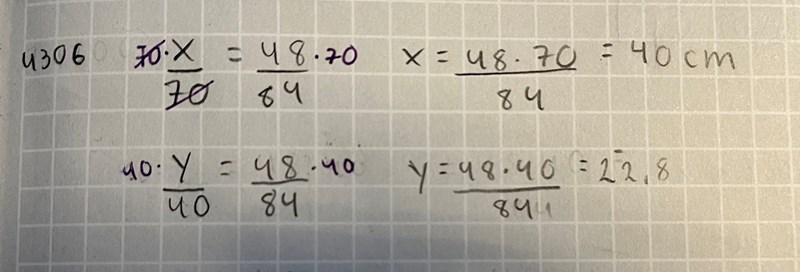 4306 70·x/70 = 48·70/84 x = 48·70/84 = 40 cm
40·y/40 = 48·40/84 y = 48·40/84 = 22,8